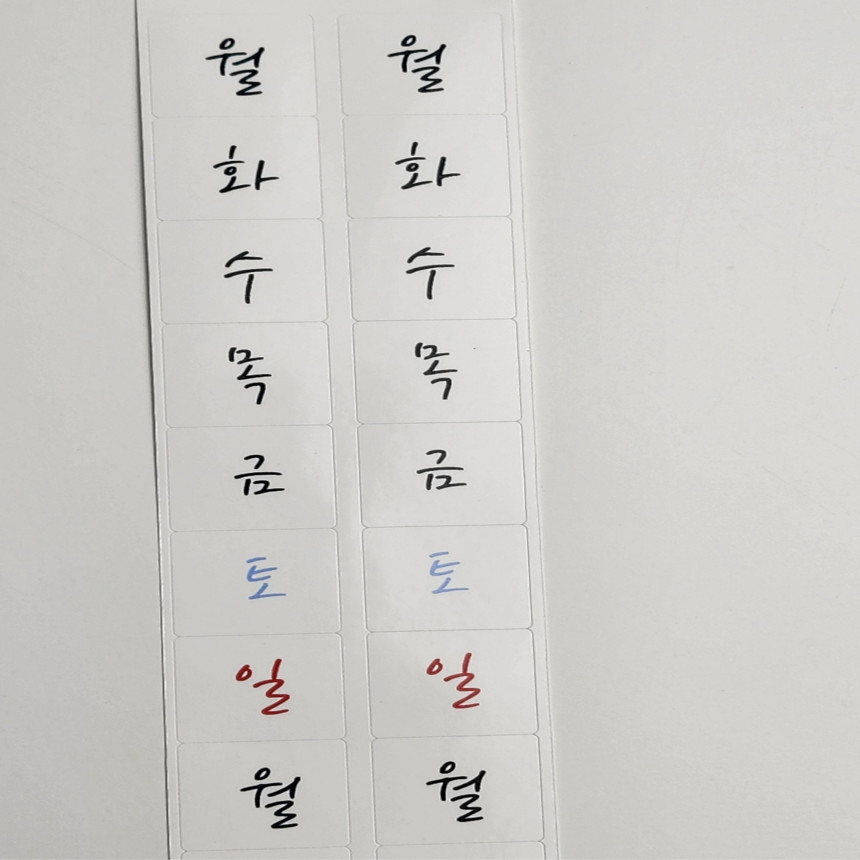 월 월
화 화
수 수
목 목
금 금
토 토
일 일
월 월